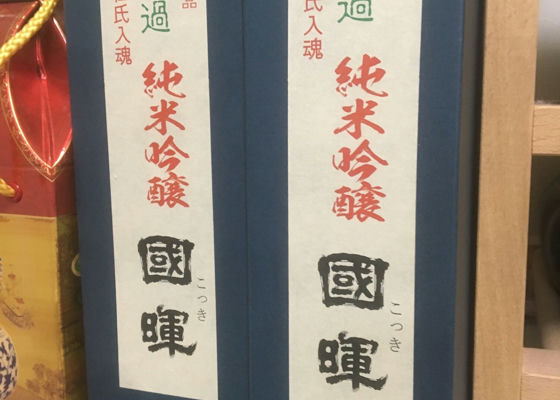 品
過
氏入魂
純米吟醸
國暉
こっき
過
氏入魂
純米吟醸
國暉
こっき